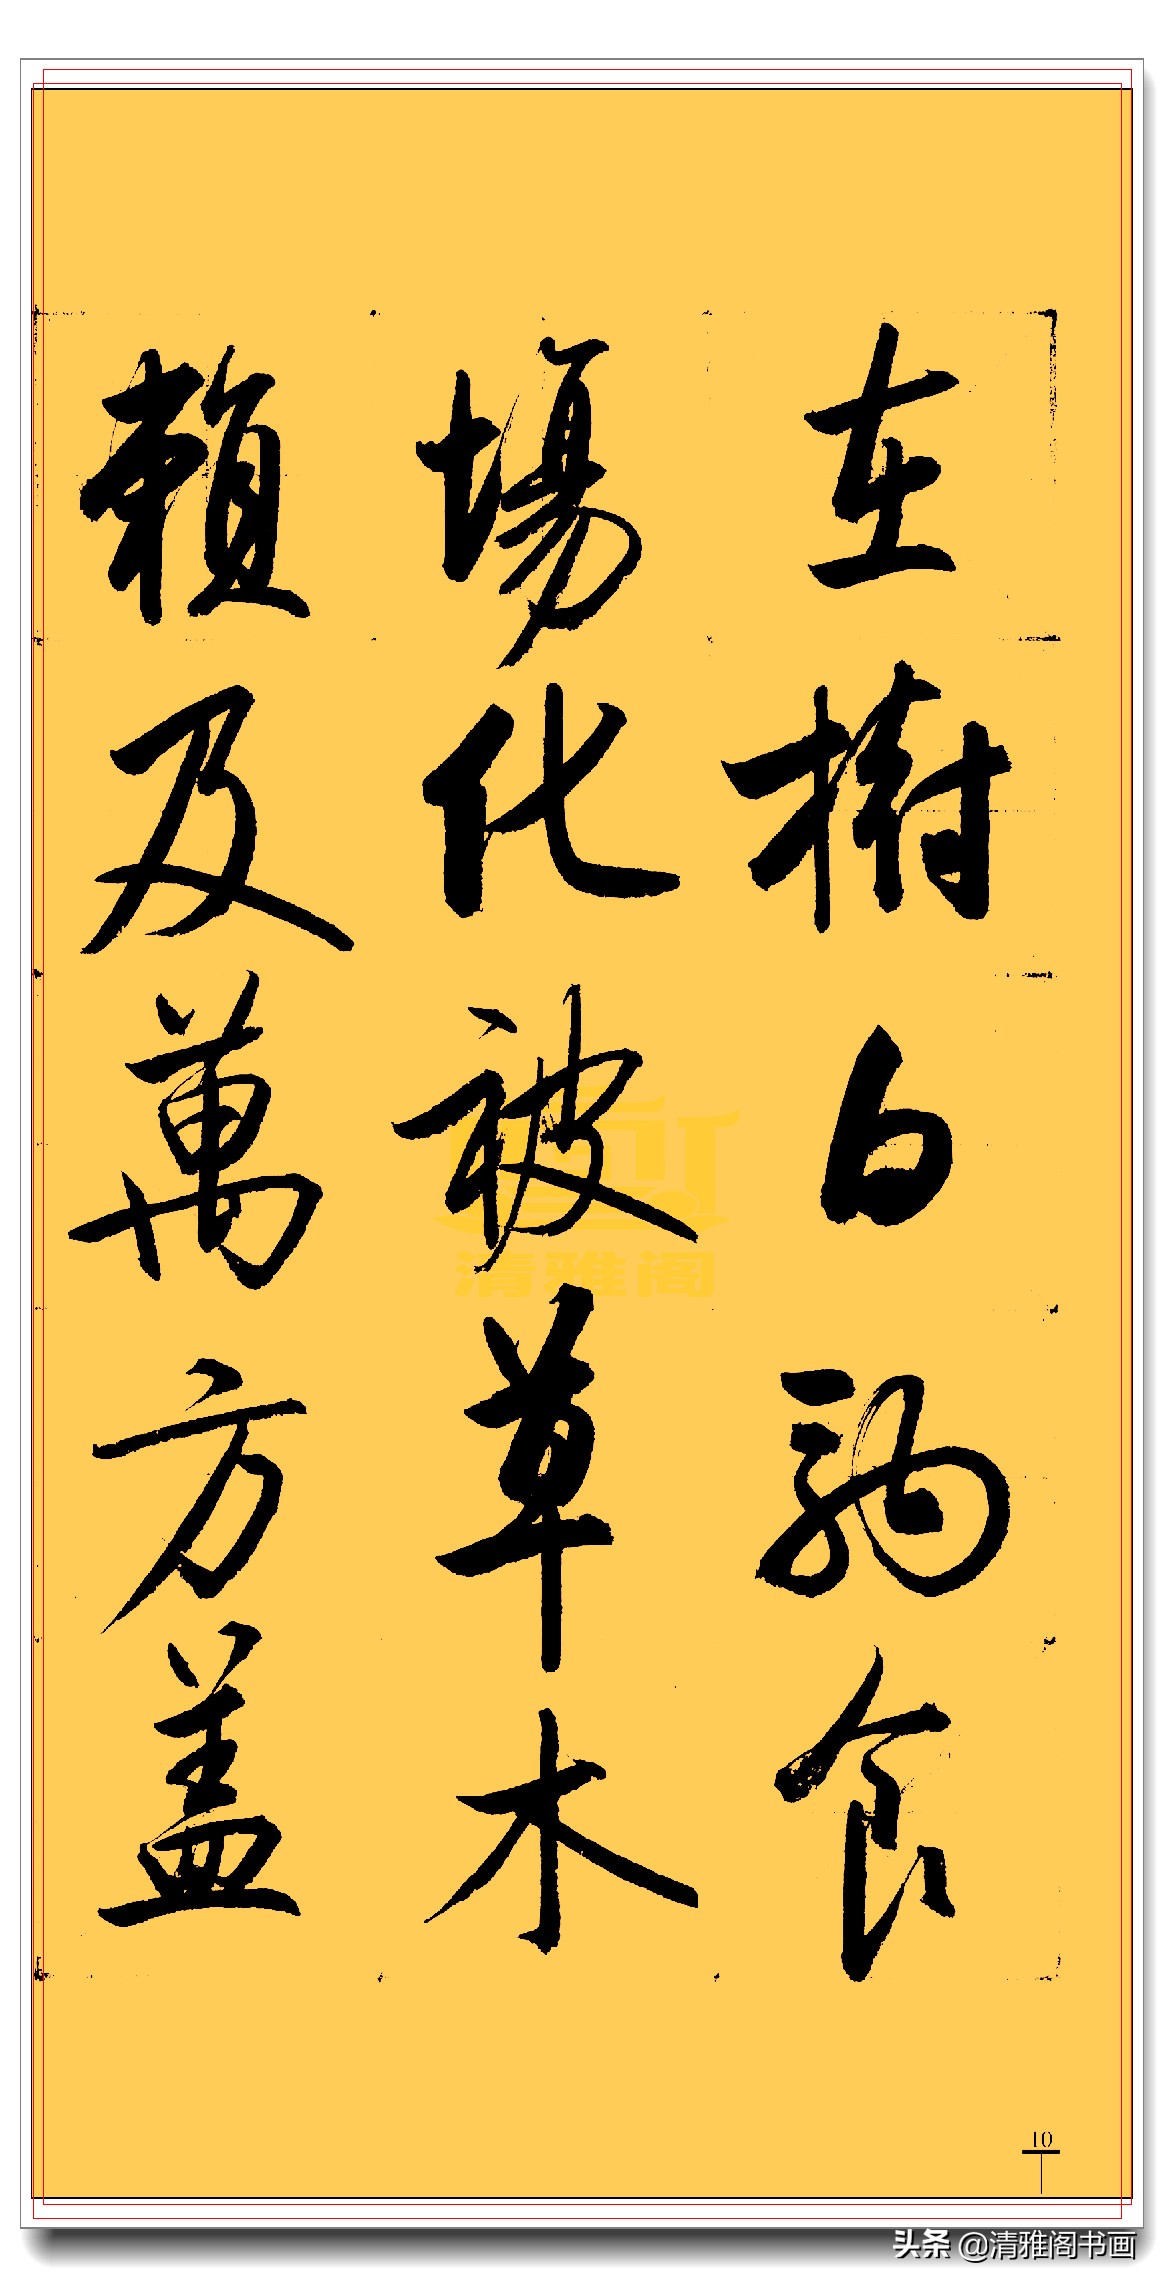 在樹白駒食
場化被草木
賴及萬方盖
清雅阁
10
头条 @清雅阁书画